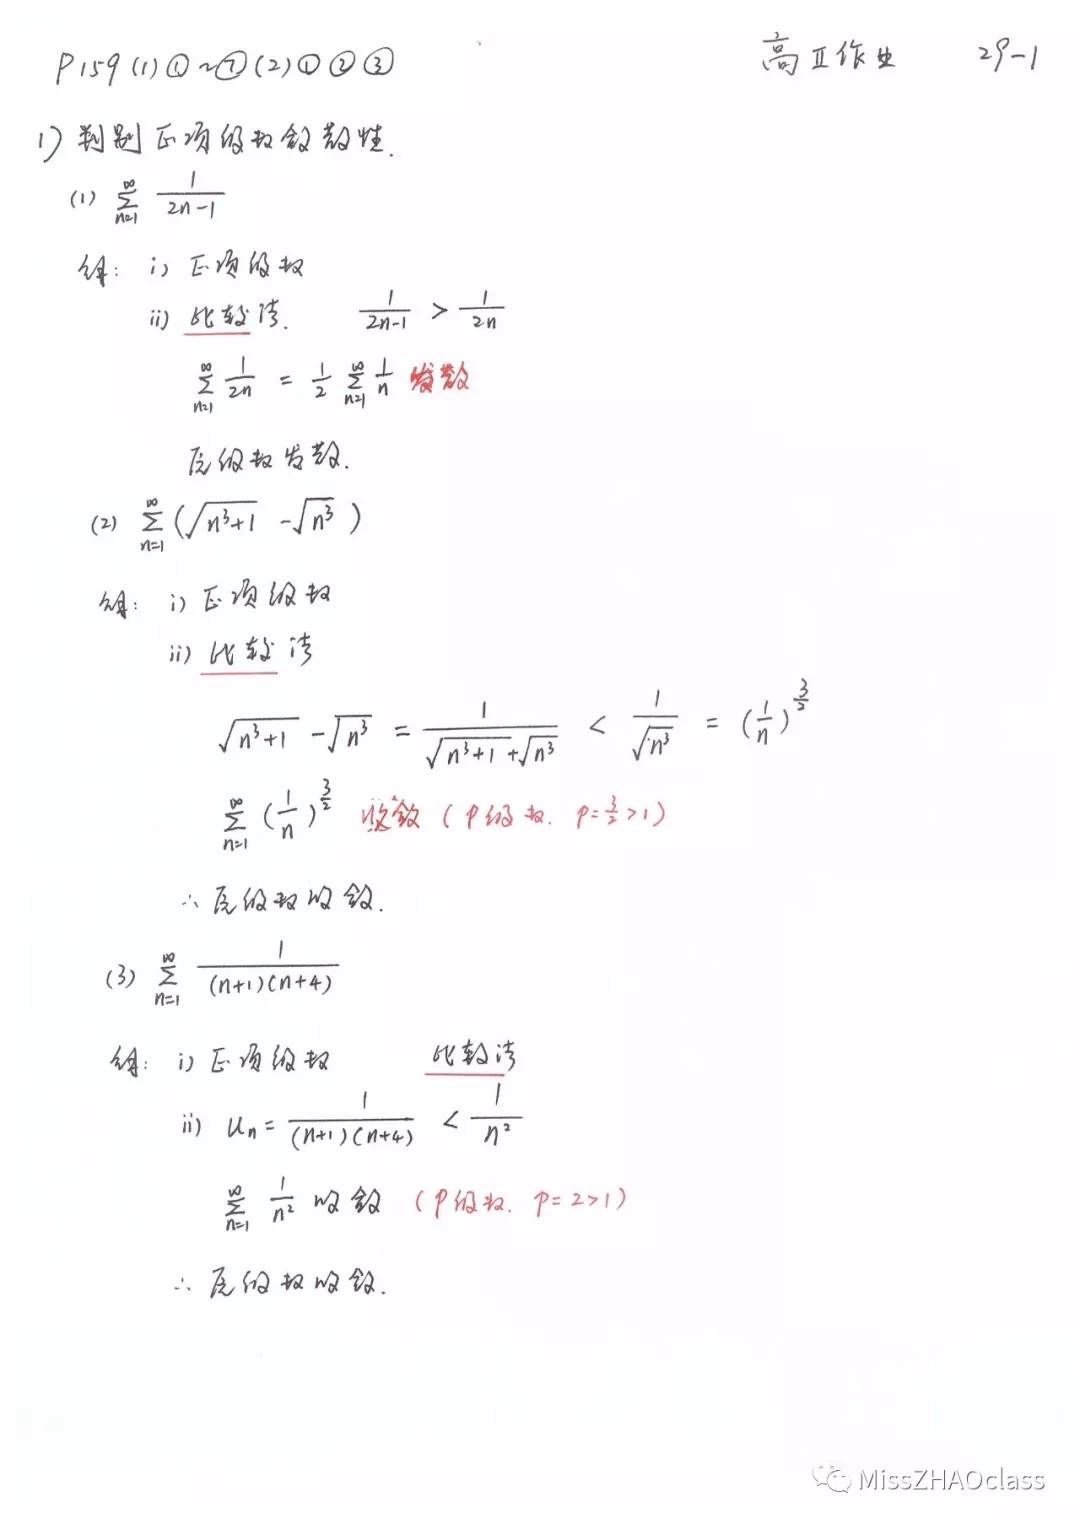 P159 (1) ①~⑦ (2) ① ② ③
高Ⅱ作业 29-1
1) 判别正项级数敛散性.
(1) ∑_{n=1}^{∞} 1/(2n-1)
解: i) 正项级数
ii) 比较法. 1/(2n-1) > 1/(2n)
∑_{n=1}^{∞} 1/(2n) = 1/2 ∑_{n=1}^{∞} 1/n 发散
原级数发散.
(2) ∑_{n=1}^{∞} (√(n³+1) - √(n³))
解: i) 正项级数
ii) 比较法
√(n³+1) - √(n³) = 1/(√(n³+1) + √(n³)) < 1/√(n³) = (1/n)^{3/2}
∑_{n=1}^{∞} (1/n)^{3/2} 收敛 (P级数. P=3/2>1)
∴ 原级数收敛.
(3) ∑_{n=1}^{∞} 1/((n+1)(n+4))
解: i) 正项级数 比较法
ii) Uₙ = 1/((n+1)(n+4)) < 1/n²
∑_{n=1}^{∞} 1/n² 收敛 (P级数. P=2>1)
∴ 原级数收敛.
MissZHAOclass